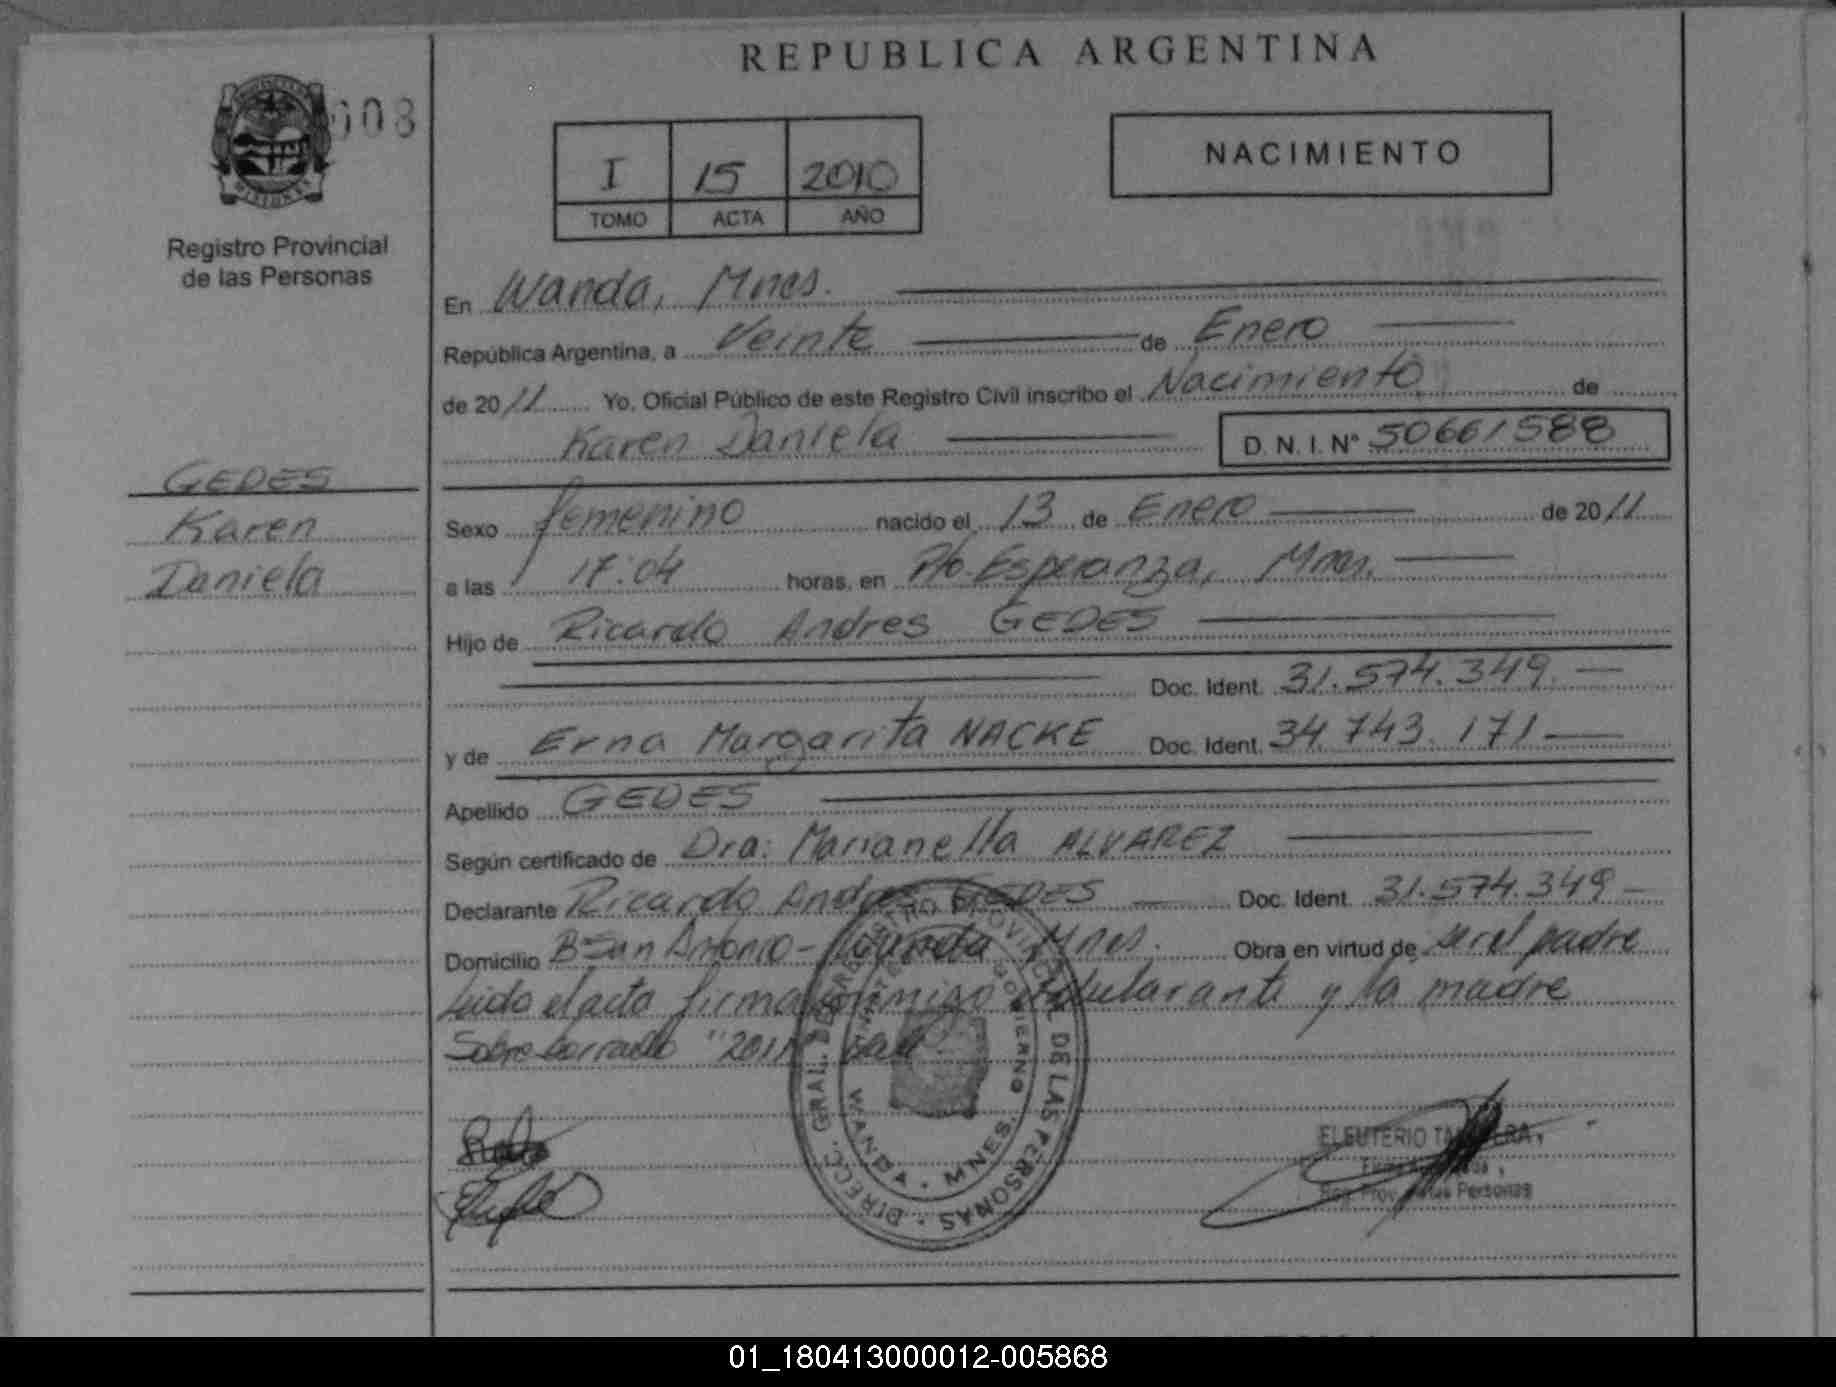 REPUBLICA ARGENTINA
008
I 15 2010
TOMO ACTA AÑO
NACIMIENTO
Registro Provincial
de las Personas
En Wanda, Mnes.
República Argentina, a Veinte de Enero
de 2011 Yo, Oficial Público de este Registro Civil inscribo el Nacimiento de
Karen Daniela D. N. I. Nº 50661588
GEDES
Karen
Daniela
Sexo femenino nacido el 13 de Enero de 2011
a las 17:04 horas, en Pto. Esperanza, Mnes.
Hijo de Ricardo Andres GEDES
Doc. Ident. 31.574.349.
y de Erna Margarita NACKE Doc. Ident. 34 743. 171
Apellido GEDES
Según certificado de Dra: Marianella ALVAREZ
Declarante Ricardo Andres GEDES Doc. Ident. 31.574.349
Domicilio Bº San Antonio - Wanda Mnes. Obra en virtud de ser el padre
Leido el acta firma conmigo el declarante y la madre
Sobre borrado "2011" vale
DIRECC. GRAL. DEL REGISTRO PROVINCIAL DE LAS PERSONAS
WANDA - MNES.
ELEUTERIO
Reg. Prov. de las Personas
01_180413000012-005868